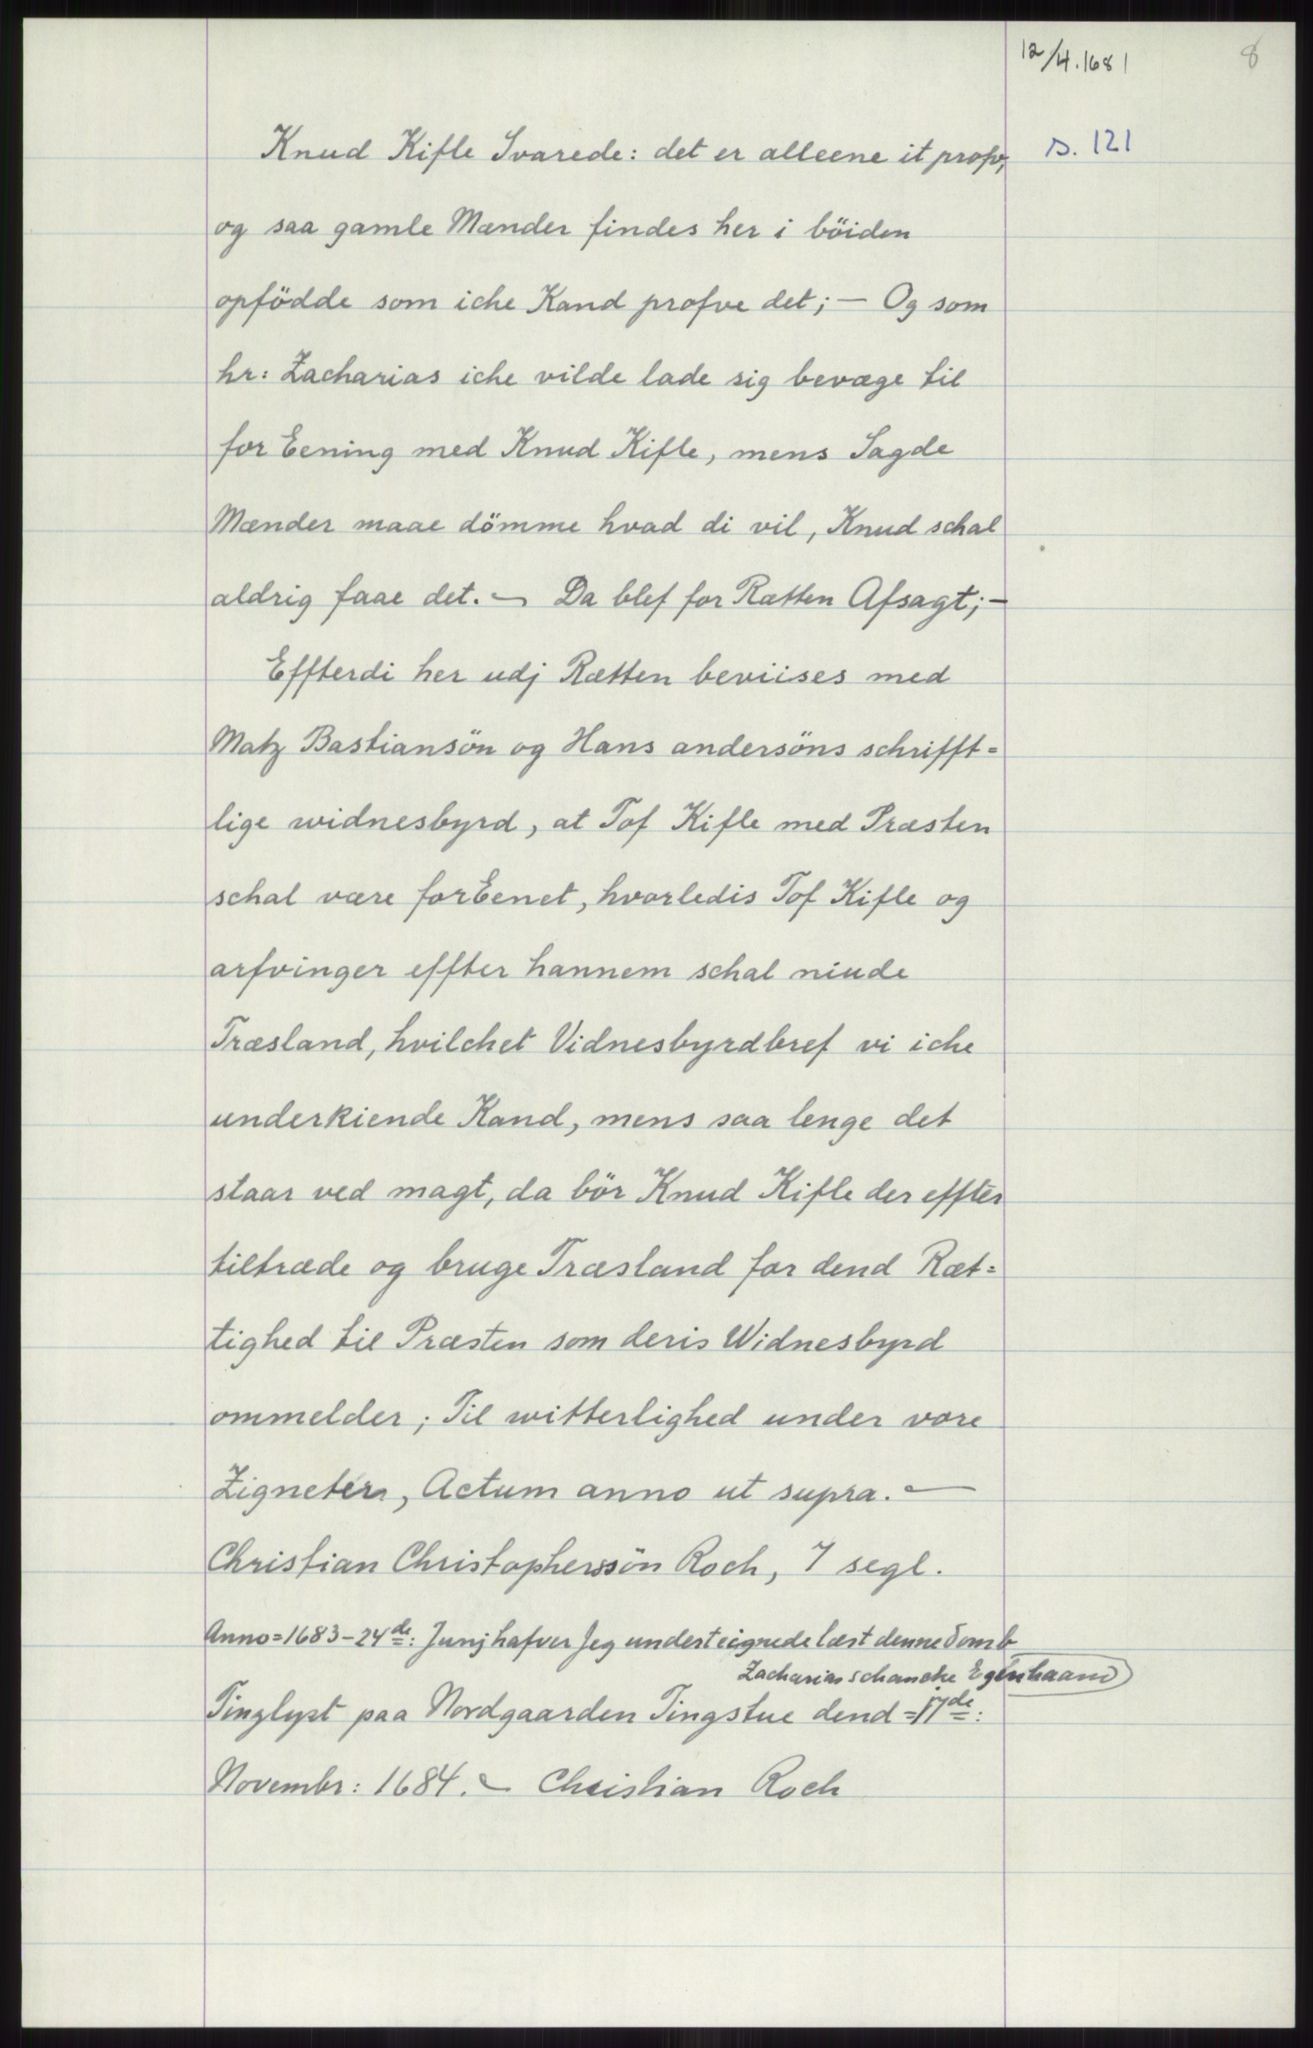 12/4.1681
8
s. 121
Knud Kifle Svarede: det er alleene it profv,
og saa gamle Mænder findes her i böiden
opfödde som iche Kand profve det; — Og som
hr: Zacharias iche vilde lade sig bevæge til
for Eening med Knud Kifle, mens Sagde
Mænder maae dömme hvad di vil, Knud schal
aldrig faae det. — Da blef for Rætten Afsagt; —
Effterdi her udj Rætten beviises med
Matz Bastiansön og Hans andersöns schrifft=
lige widnesbyrd, at Tof Kifle med Præsten
schal være forEenet, hvorledis Tof Kifle og
arfvinger effter hannem schal niude
Træsland, hvilchet Vidnesbyrdbref vi iche
underkiende Kand, mens saa lenge det
staar ved magt, da bör Knud Kifle der effter
tiltræde og bruge Træsland for dend Ræt=
tighed til Præsten som deris Widnesbyrd
ommelder; Til witterlighed under vore
Zigneter, Actum anno ut supra. —
Christian Christopherssön Roch, 7 segl.
Anno=1683-24de: Junj hafver Jeg underteignede læst denne Domb
Zacharias schancke Egenhaand
Tinglyst paa Nordgaarden Tingstue dend =17de:
Novembr: 1684. — Christian Roch